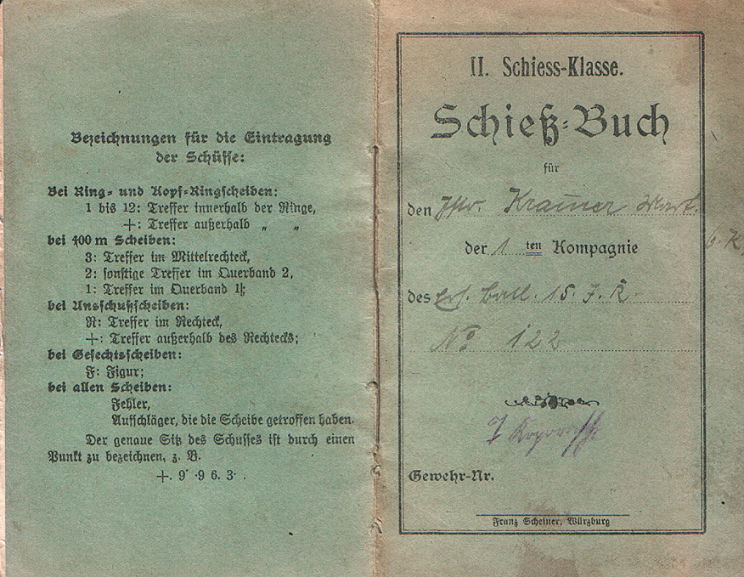 Bezeichnungen für die Eintragung
der Schüsse:
Bei Ring- und Kopf-Ringscheiben:
1 bis 12: Treffer innerhalb der Ringe,
+: Treffer außerhalb „ „
bei 400 m Scheiben:
3: Treffer im Mittelrechteck,
2: sonstige Treffer im Querband 2,
1: Treffer im Querband 1;
bei Ausschußscheiben:
R: Treffer im Rechteck,
+: Treffer außerhalb des Rechtecks;
bei Gefechtsscheiben:
F: Figur;
bei allen Scheiben:
Fehler,
Aufschläger, die die Scheibe getroffen haben.
Der genaue Sitz des Schusses ist durch einen
Punkt zu bezeichnen, z. B.
+. 9˙ ·9 6. 3·
II. Schiess-Klasse.
Schieß-Buch
für
den Kramer
der 1 ten Kompagnie
des Batl. 15. J. R.
No 122
Gewehr-Nr.
Franz Scheiner, Würzburg